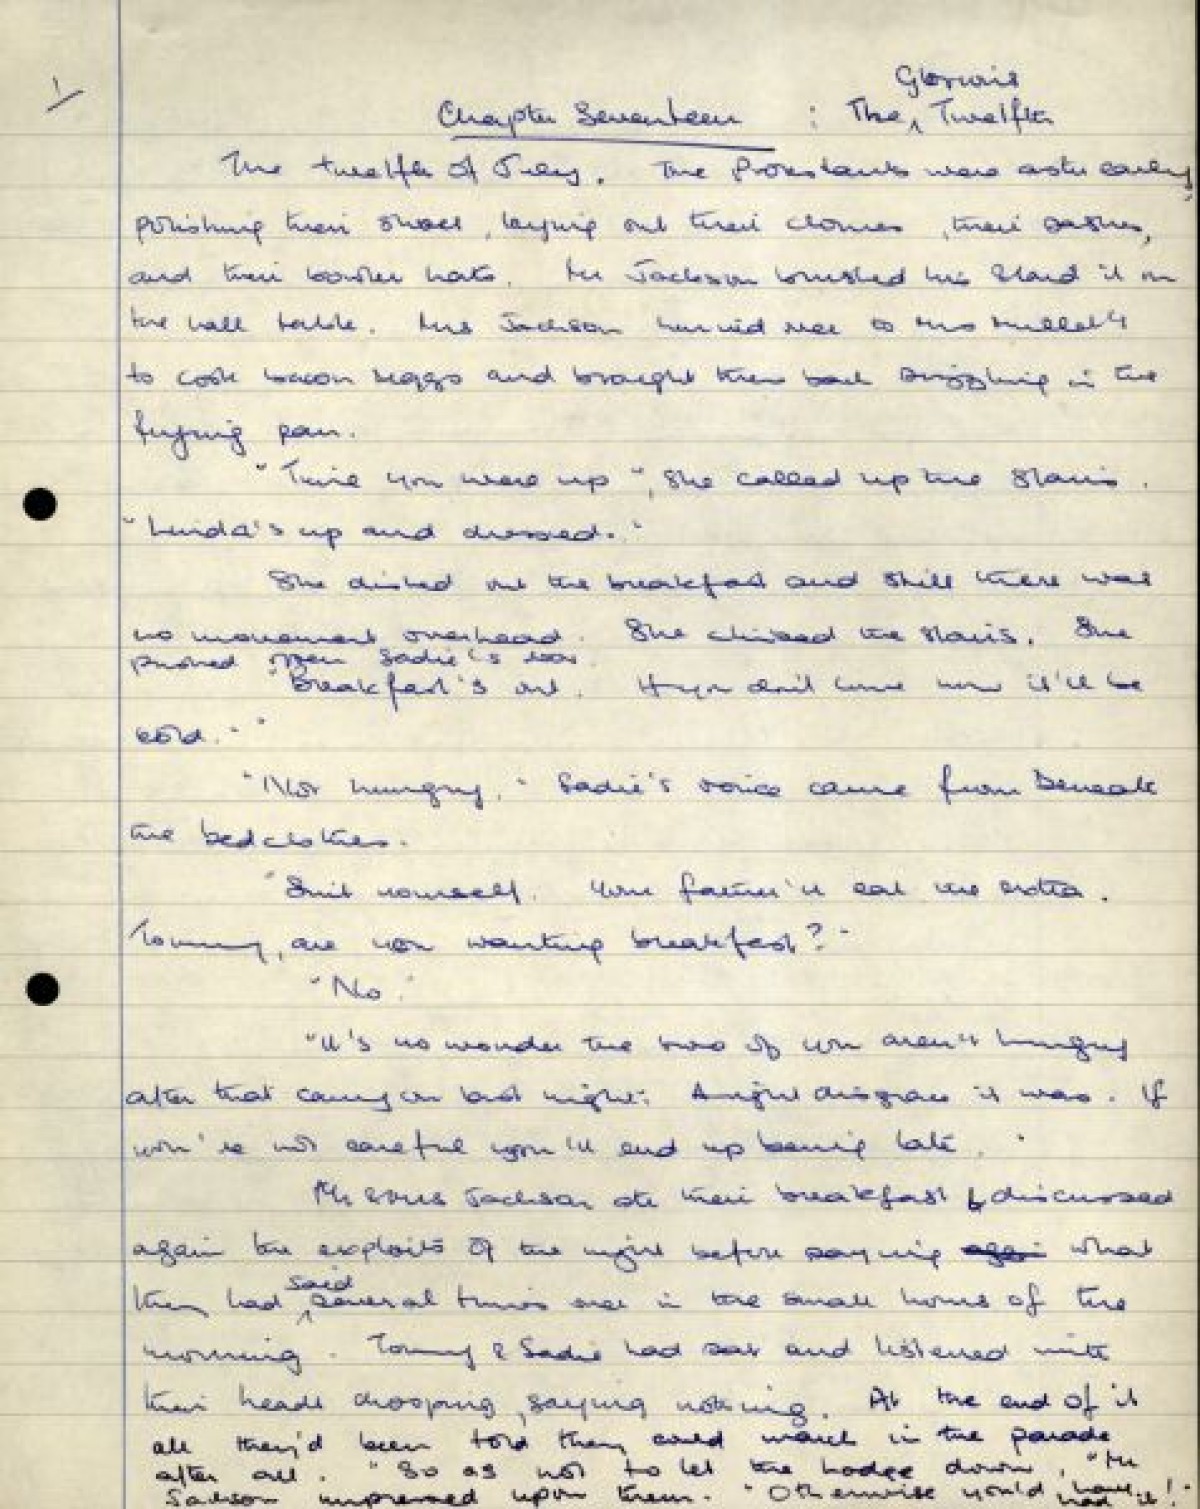 1
Glorious
Chapter Seventeen : The ^ Twelfth
The twelfth of July. The Protestants were astir early,
polishing their shoes, laying out their clothes, their sashes,
and their bowler hats. Mr Jackson brushed his & laid it on
the hall table. Mrs Jackson hurried over to Mrs Mullet's
to cook bacon & eggs and brought them back sizzling in the
frying pan.
"Time you were up", she called up the stairs.
"Linda's up and dressed."
She dished out the breakfast and still there was
no movement overhead. She climbed the stairs. She
pushed open Sadie's door.
"Breakfast's out. If you don't come now it'll be
cold."
"Not hungry." Sadie's voice came from beneath
the bedclothes.
"Suit yourself. Your father'll eat the extra.
Tommy, are you wanting breakfast?"
"No."
"It's no wonder the two of you aren't hungry
after that carry on last night. A right disgrace it was. If
you're not careful you'll end up being late."
Mr & Mrs Jackson ate their breakfast & discussed
again the exploits of the night before saying what
said
they had ^ several times over in the small hours of the
morning. Tommy & Sadie had sat and listened with
their heads drooping, saying nothing. At the end of it
all they'd been told they could march in the parade
after all. "So as not to let the Lodge down," Mr
Jackson impressed upon them. "Otherwise you'd have
had it!"